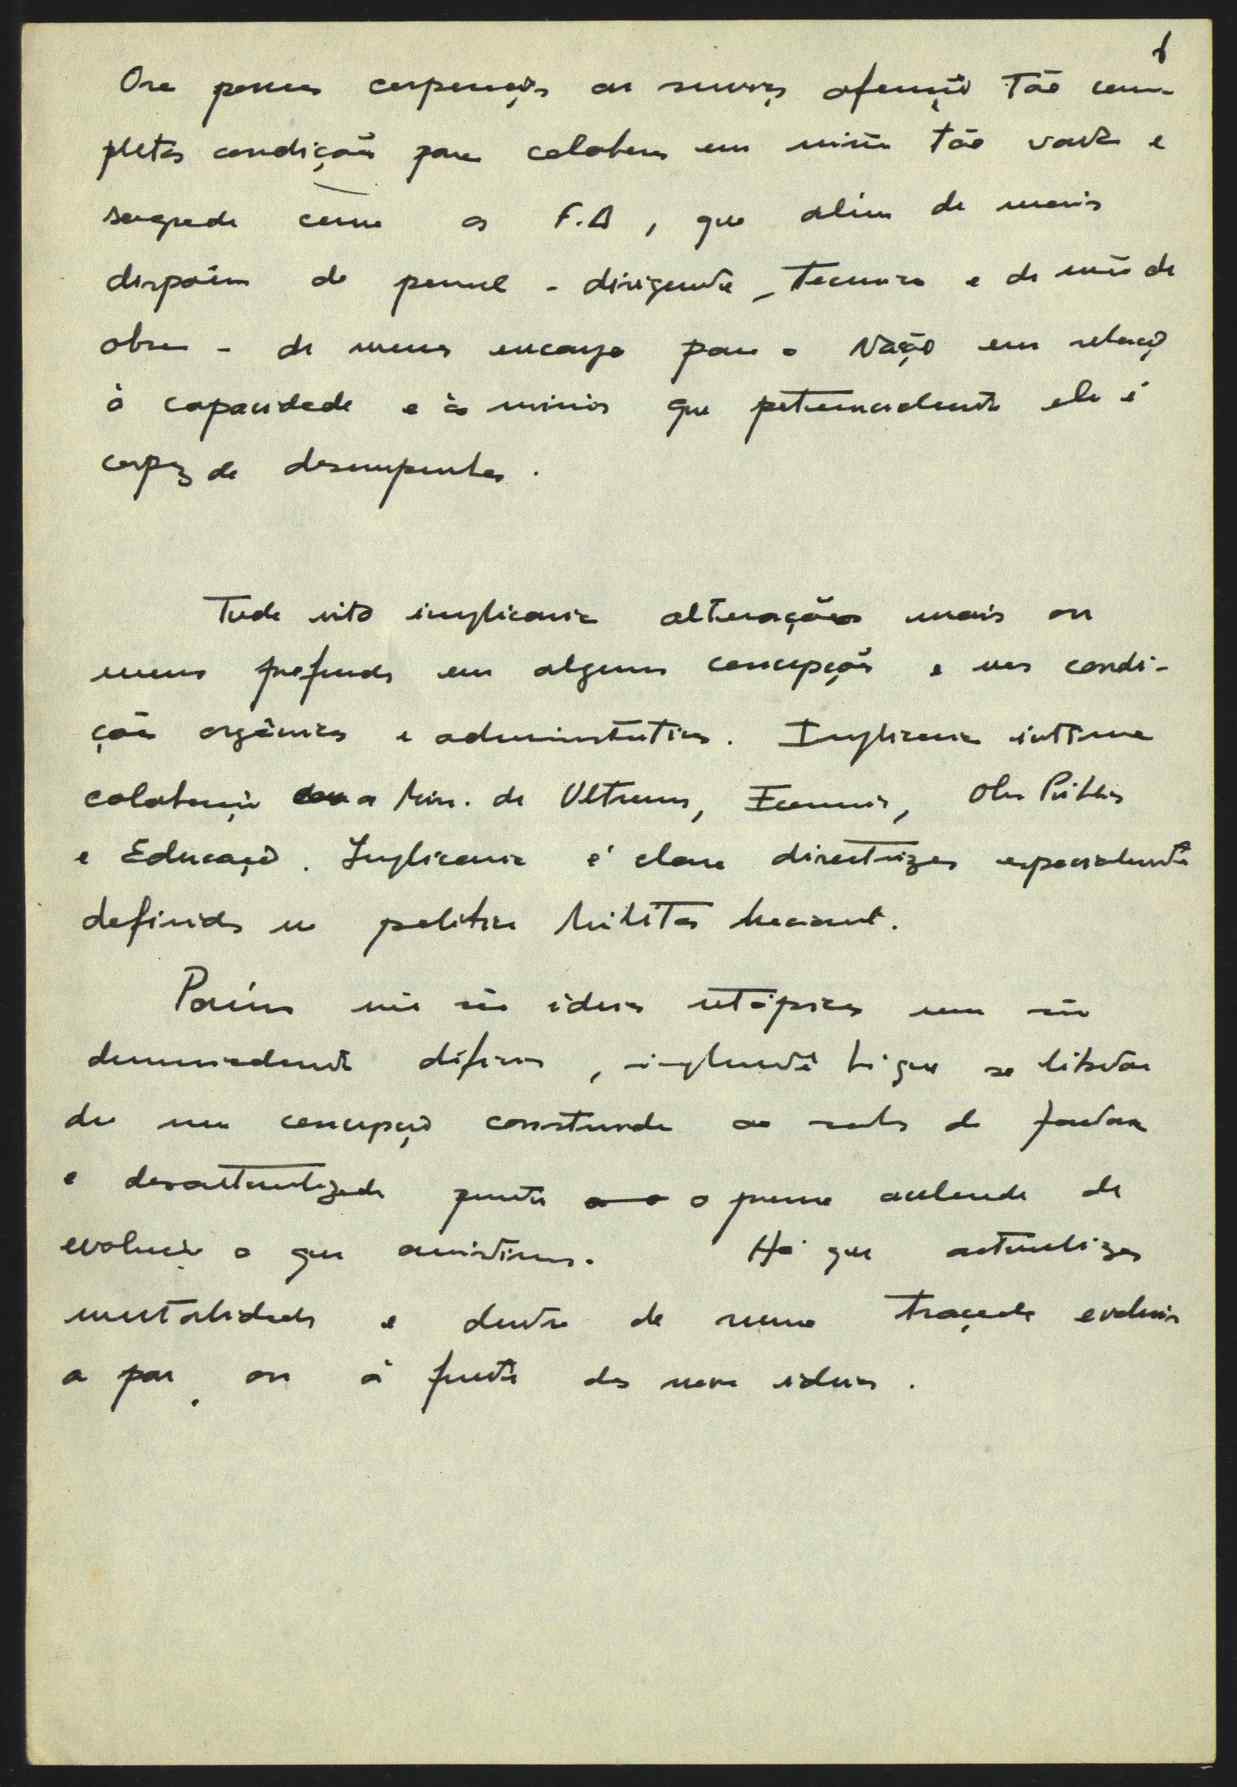 6
Ora poucas corporações ou serviços oferecerão tão com-
pletas condições para colaborar em missão tão vasta e
sagrada como as F.A, que além de mais
dispõem de pessoal - dirigente, técnico e de mão de
obra - de menos encargo para a Nação em relação
à capacidade e às missões que potencialmente ele é
capaz de desempenhar.
Tudo isto implicaria alterações mais ou
menos profundas em algumas concepções e nas condi-
ções orgânicas e administrativas. Implicaria íntima
colaboração com o Min. do Ultramar, Economia, Obras Públicas
e Educação. Implicaria é claro directrizes especialmente
definidas na política Militar Nacional.
Porém não são ideias utópicas nem são
demasiadamente difíceis, simplesmente há que se libertar
de uma concepção construída ao sabor do
e desactualizada perante o acelerado da
evolução a que assistimos. Há que actualizar
mentalidades e dentro de rumo traçado evoluir
a par ou à frente das novas ideias.